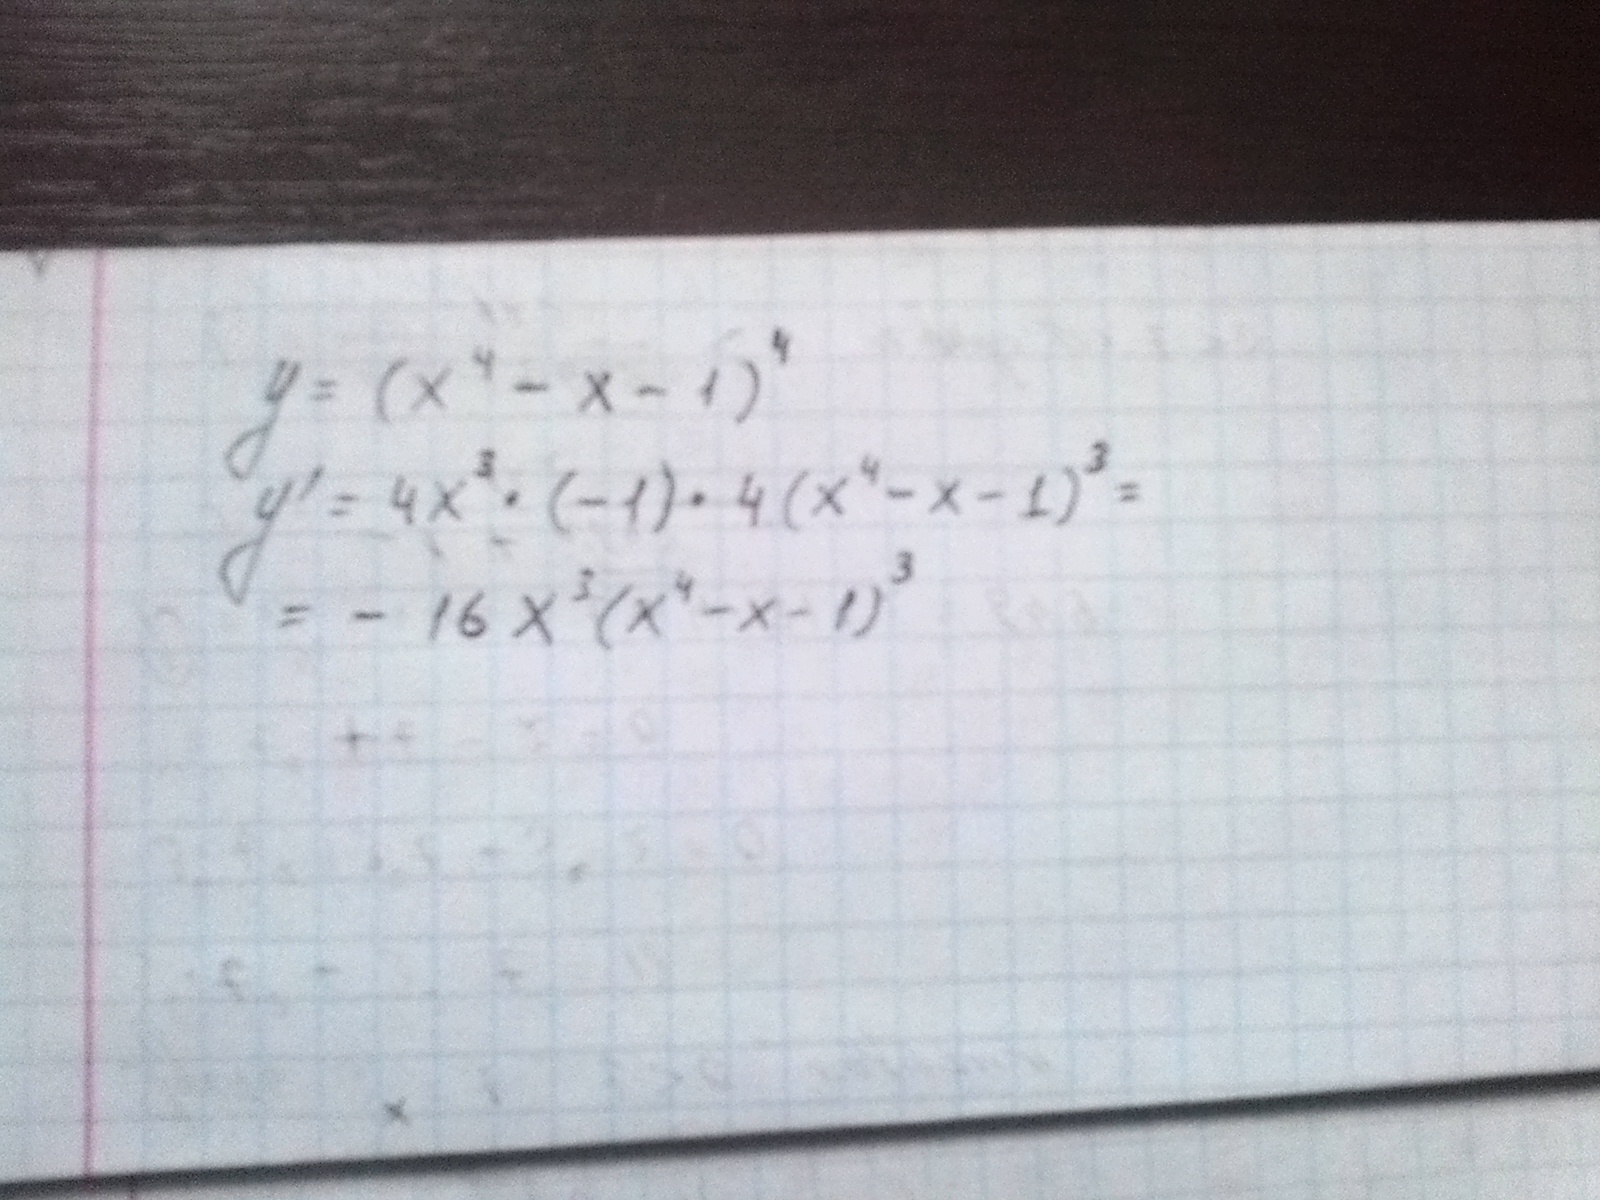 y = (x⁴ - x - 1)⁴
y' = 4x³ · (-1) · 4(x⁴ - x - 1)³ =
= - 16x³(x⁴ - x - 1)³